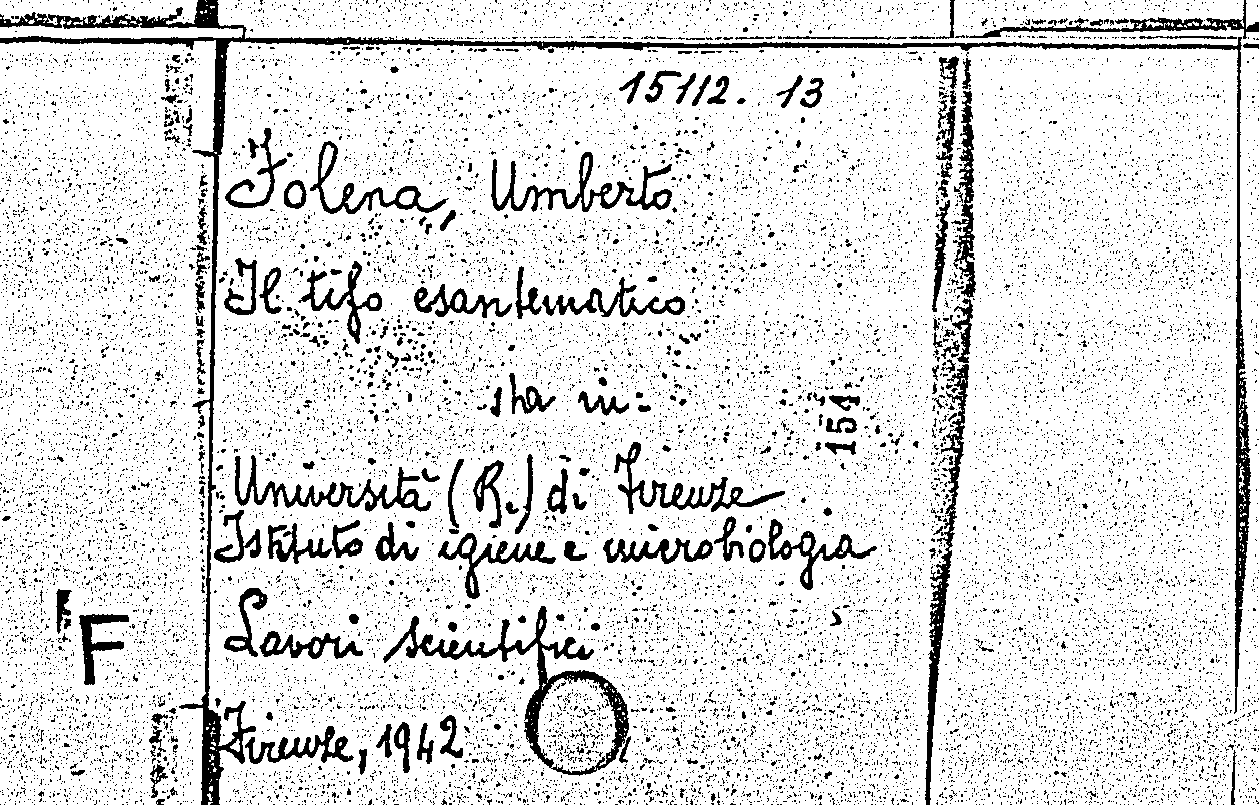 15112. 13
Folena, Umberto
Il tifo esantematico
sta in:
151
Università (R.) di Firenze
Istituto di igiene e microbiologia
Lavori scientifici
F
Firenze, 1942